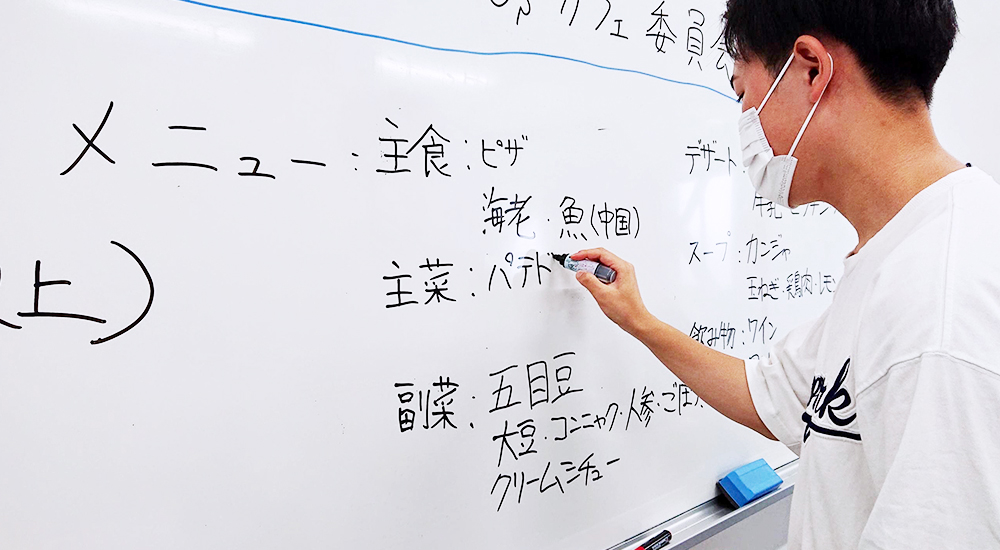 カフェ委員会
メニュー:主食:ピザ
海老・魚(中国)
(上)
主菜:パテド
副菜:五目豆
大豆・コンニャク・人参・ごぼ
クリームシチュー
デザート:
スープ:カンジャ
玉ねぎ・鶏肉・レモ
飲み物:ワイン